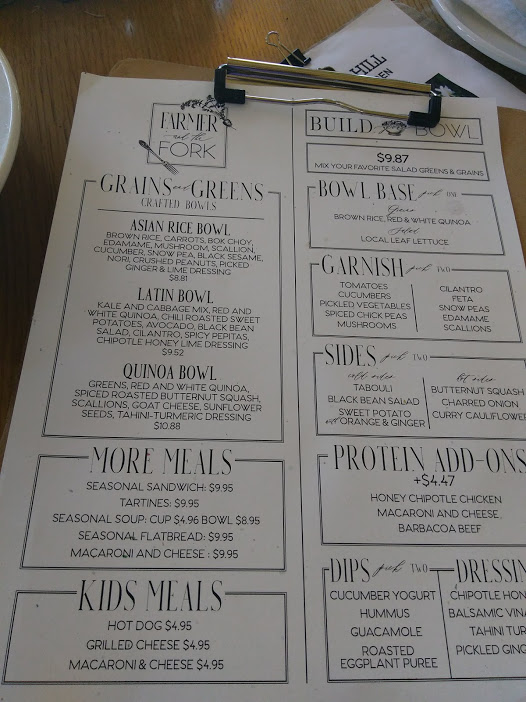 HILL
FARMER
and the
FORK
GRAINS and GREENS
CRAFTED BOWLS
ASIAN RICE BOWL
BROWN RICE, CARROTS, BOK CHOY,
EDAMAME, MUSHROOM, SCALLION,
CUCUMBER, SNOW PEA, BLACK SESAME,
NORI, CRUSHED PEANUTS, PICKED
GINGER & LIME DRESSING
$8.81
LATIN BOWL
KALE AND CABBAGE MIX, RED AND
WHITE QUINOA, CHILI ROASTED SWEET
POTATOES, AVOCADO, BLACK BEAN
SALAD, CILANTRO, SPICY PEPITAS,
CHIPOTLE HONEY LIME DRESSING
$9.52
QUINOA BOWL
GREENS, RED AND WHITE QUINOA,
SPICED ROASTED BUTTERNUT SQUASH,
SCALLIONS, GOAT CHEESE, SUNFLOWER
SEEDS, TAHINI-TURMERIC DRESSING
$10.88
MORE MEALS
SEASONAL SANDWICH: $9.95
TARTINES: $9.95
SEASONAL SOUP: CUP $4.96 BOWL $8.95
SEASONAL FLATBREAD: $9.95
MACARONI AND CHEESE : $9.95
KIDS MEALS
HOT DOG $4.95
GRILLED CHEESE $4.95
MACARONI & CHEESE $4.95
BUILD BOWL
$9.87
MIX YOUR FAVORITE SALAD GREENS & GRAINS
BOWL BASE pick ONE
Grain
BROWN RICE, RED & WHITE QUINOA
Salad
LOCAL LEAF LETTUCE
GARNISH pick TWO
TOMATOES
CUCUMBERS
PICKLED VEGETABLES
SPICED CHICK PEAS
MUSHROOMS
CILANTRO
FETA
SNOW PEAS
EDAMAME
SCALLIONS
SIDES pick TWO
cold sides
TABOULI
BLACK BEAN SALAD
SWEET POTATO
with ORANGE & GINGER
hot sides
BUTTERNUT SQUASH
CHARRED ONION
CURRY CAULIFLOWER
PROTEIN ADD-ONS
+$4.47
HONEY CHIPOTLE CHICKEN
MACARONI AND CHEESE,
BARBACOA BEEF
DIPS pick TWO
CUCUMBER YOGURT
HUMMUS
GUACAMOLE
ROASTED
EGGPLANT PUREE
DRESSIN
CHIPOTLE HON
BALSAMIC VINA
TAHINI TUR
PICKLED GING